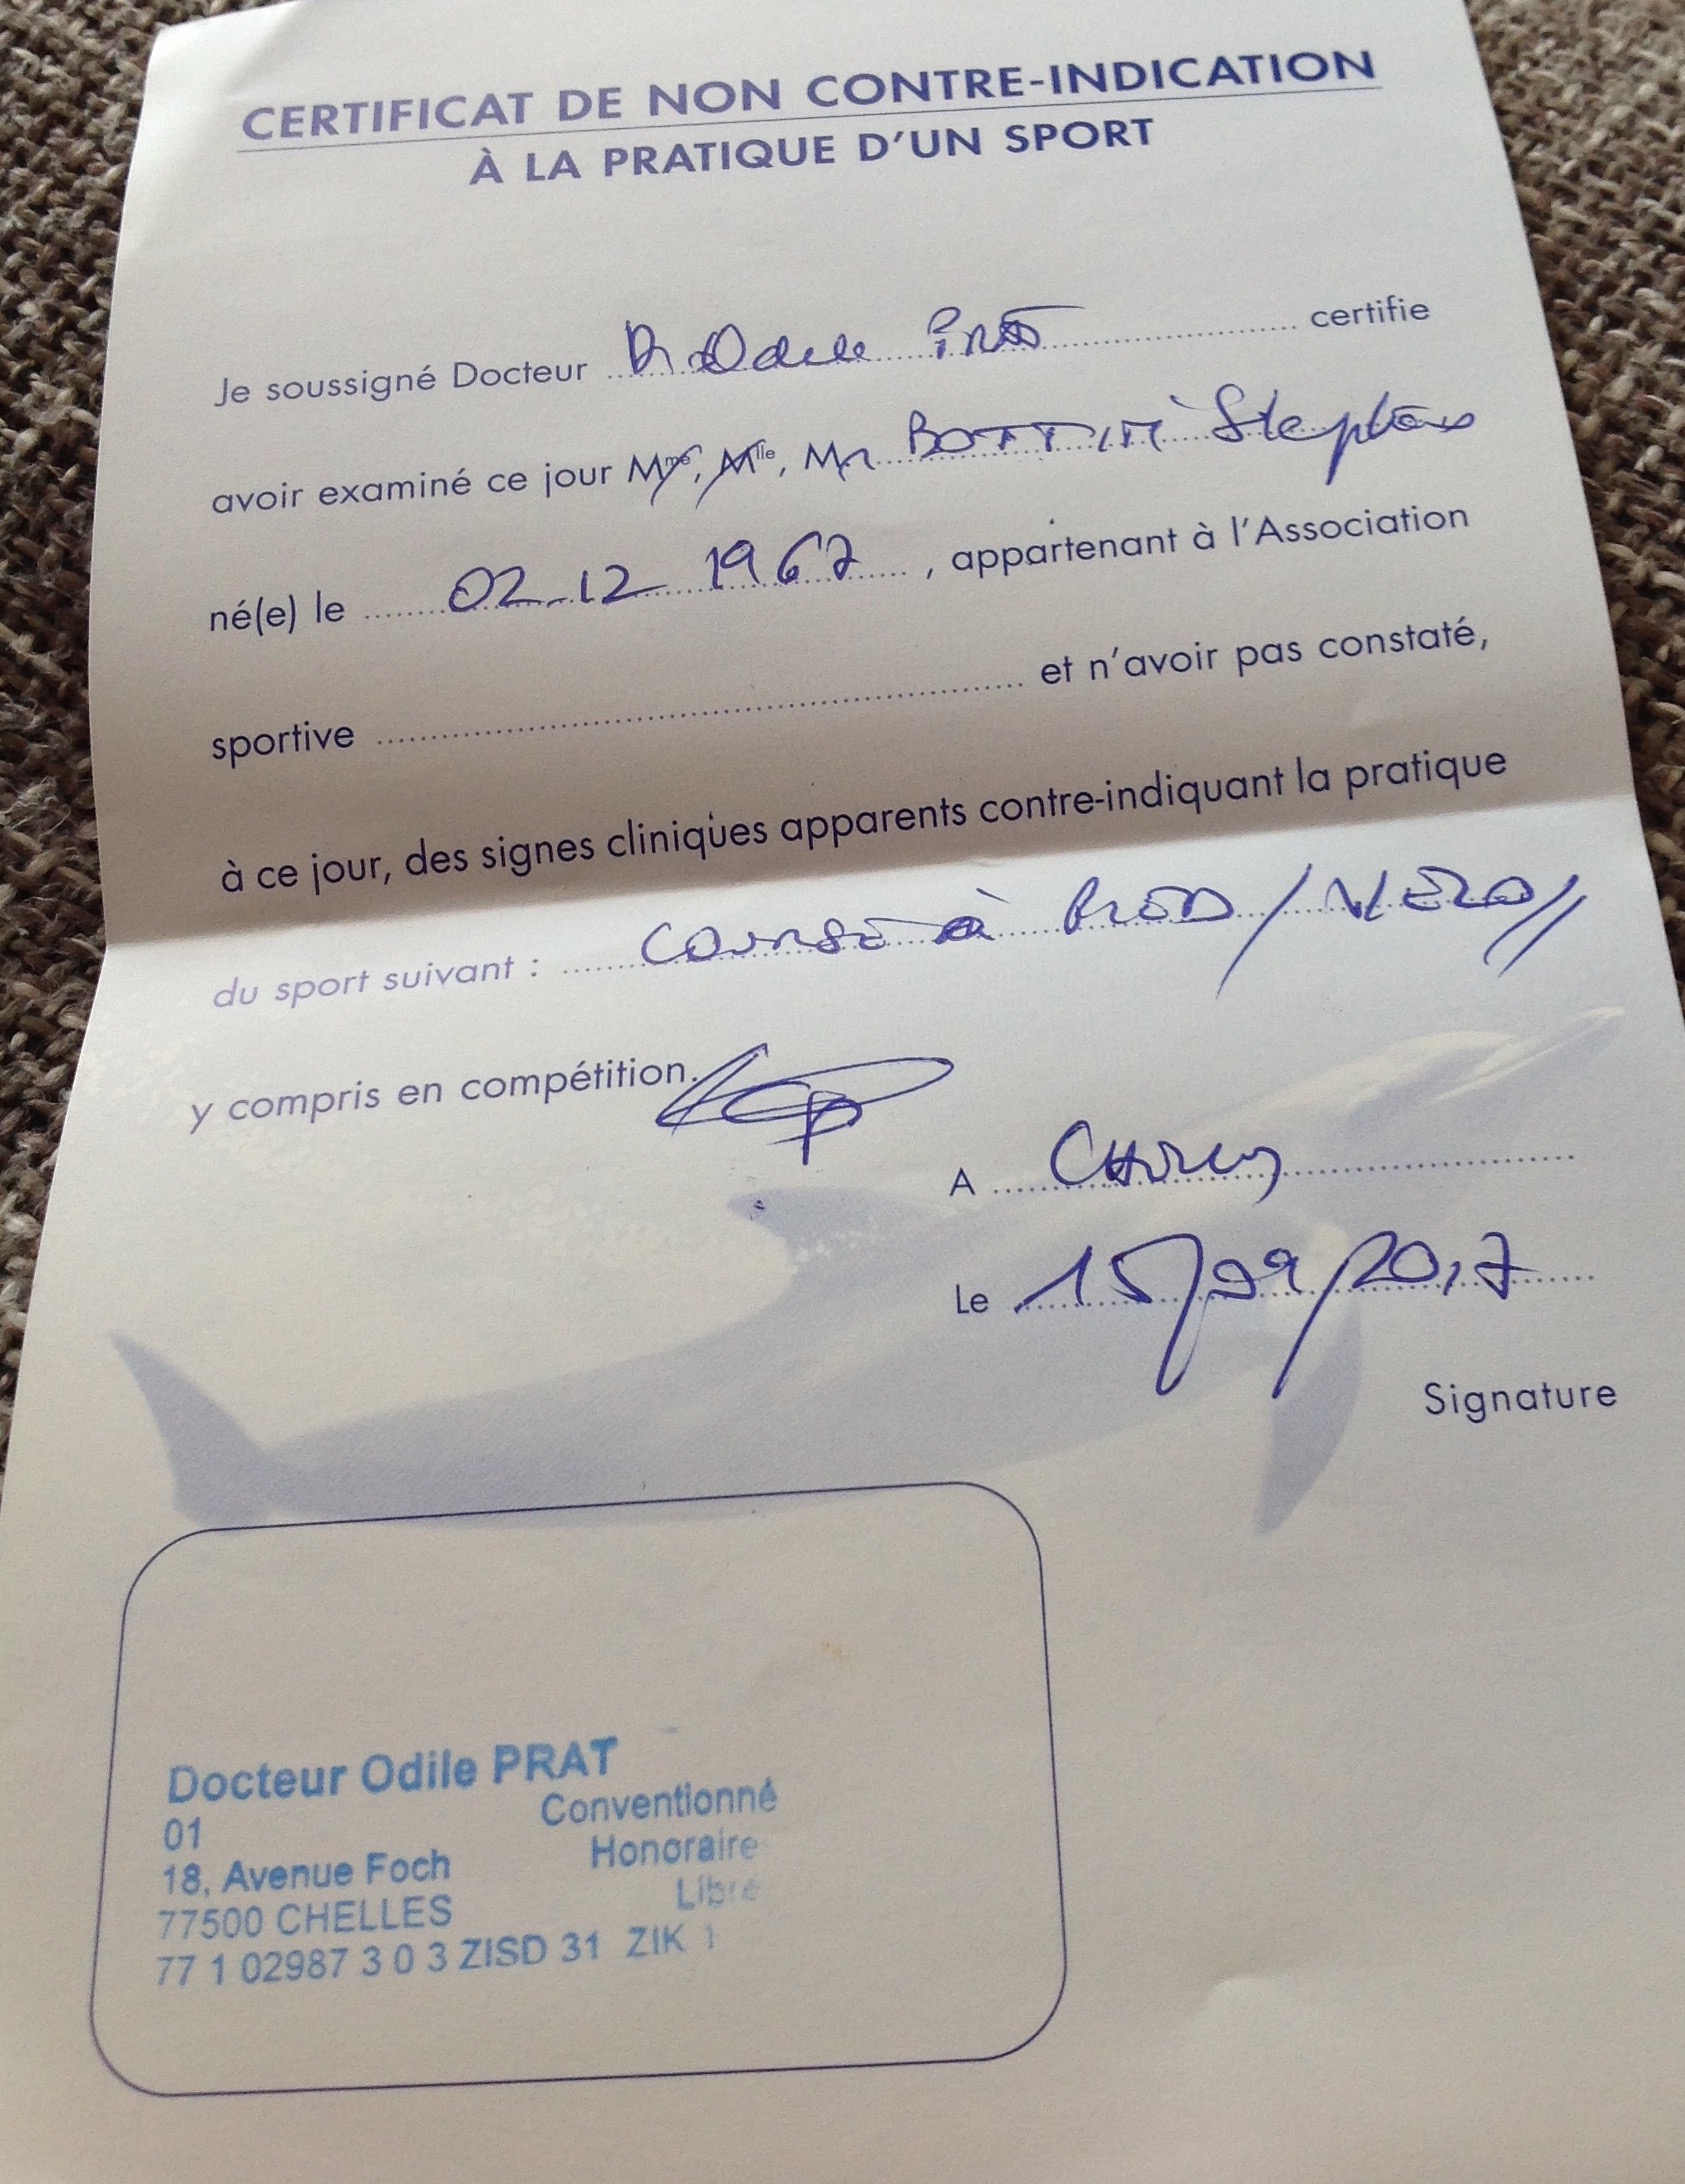 CERTIFICAT DE NON CONTRE-INDICATION
À LA PRATIQUE D'UN SPORT
Je soussigné Docteur Dr Odile Prat certifie
avoir examiné ce jour Mme, Mlle, Mr
né(e) le 02 12 1967, appartenant à l'Association
sportive et n'avoir pas constaté,
à ce jour, des signes cliniques apparents contre-indiquant la pratique
du sport suivant : course à pied / VÉLO //
y compris en compétition.
A
Le 15/09/2017
Signature
Docteur Odile PRAT
01 Conventionné
18, Avenue Foch Honoraire
77500 CHELLES Libre
77 1 02987 3 0 3 ZISD 31 ZIK 1